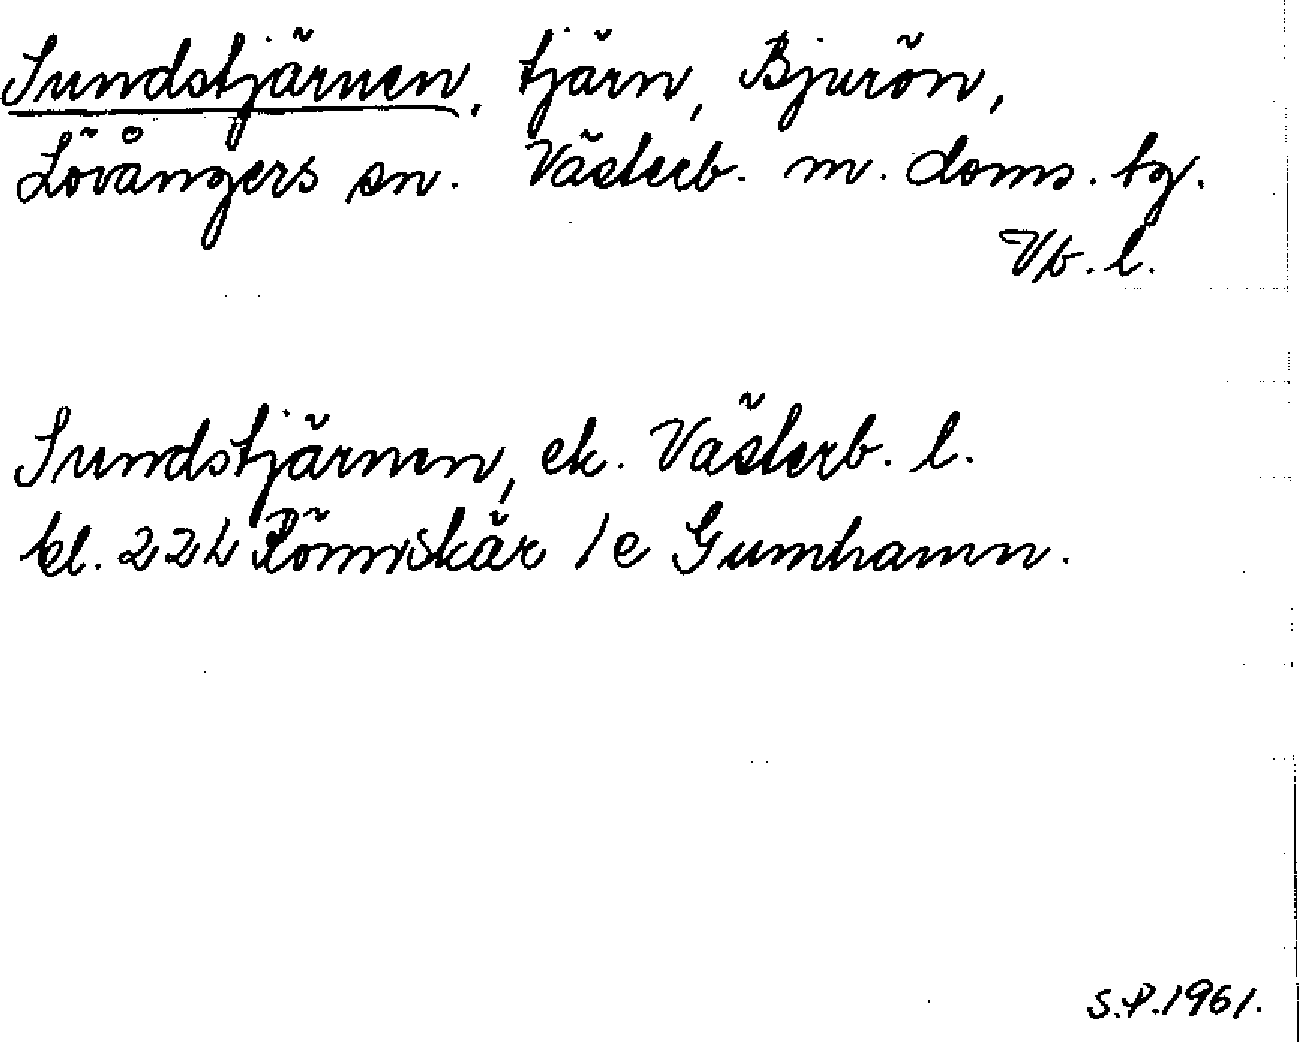 Sundstjärnen, tjärn, Bjurön,
Lövångers sn. Västerb. m. doms. tg.
Vb. l.
Sundstjärnen, ek. Västerb. l.
bl. 22L Rönnskär 1e Gumhamn.
S.P.1961.